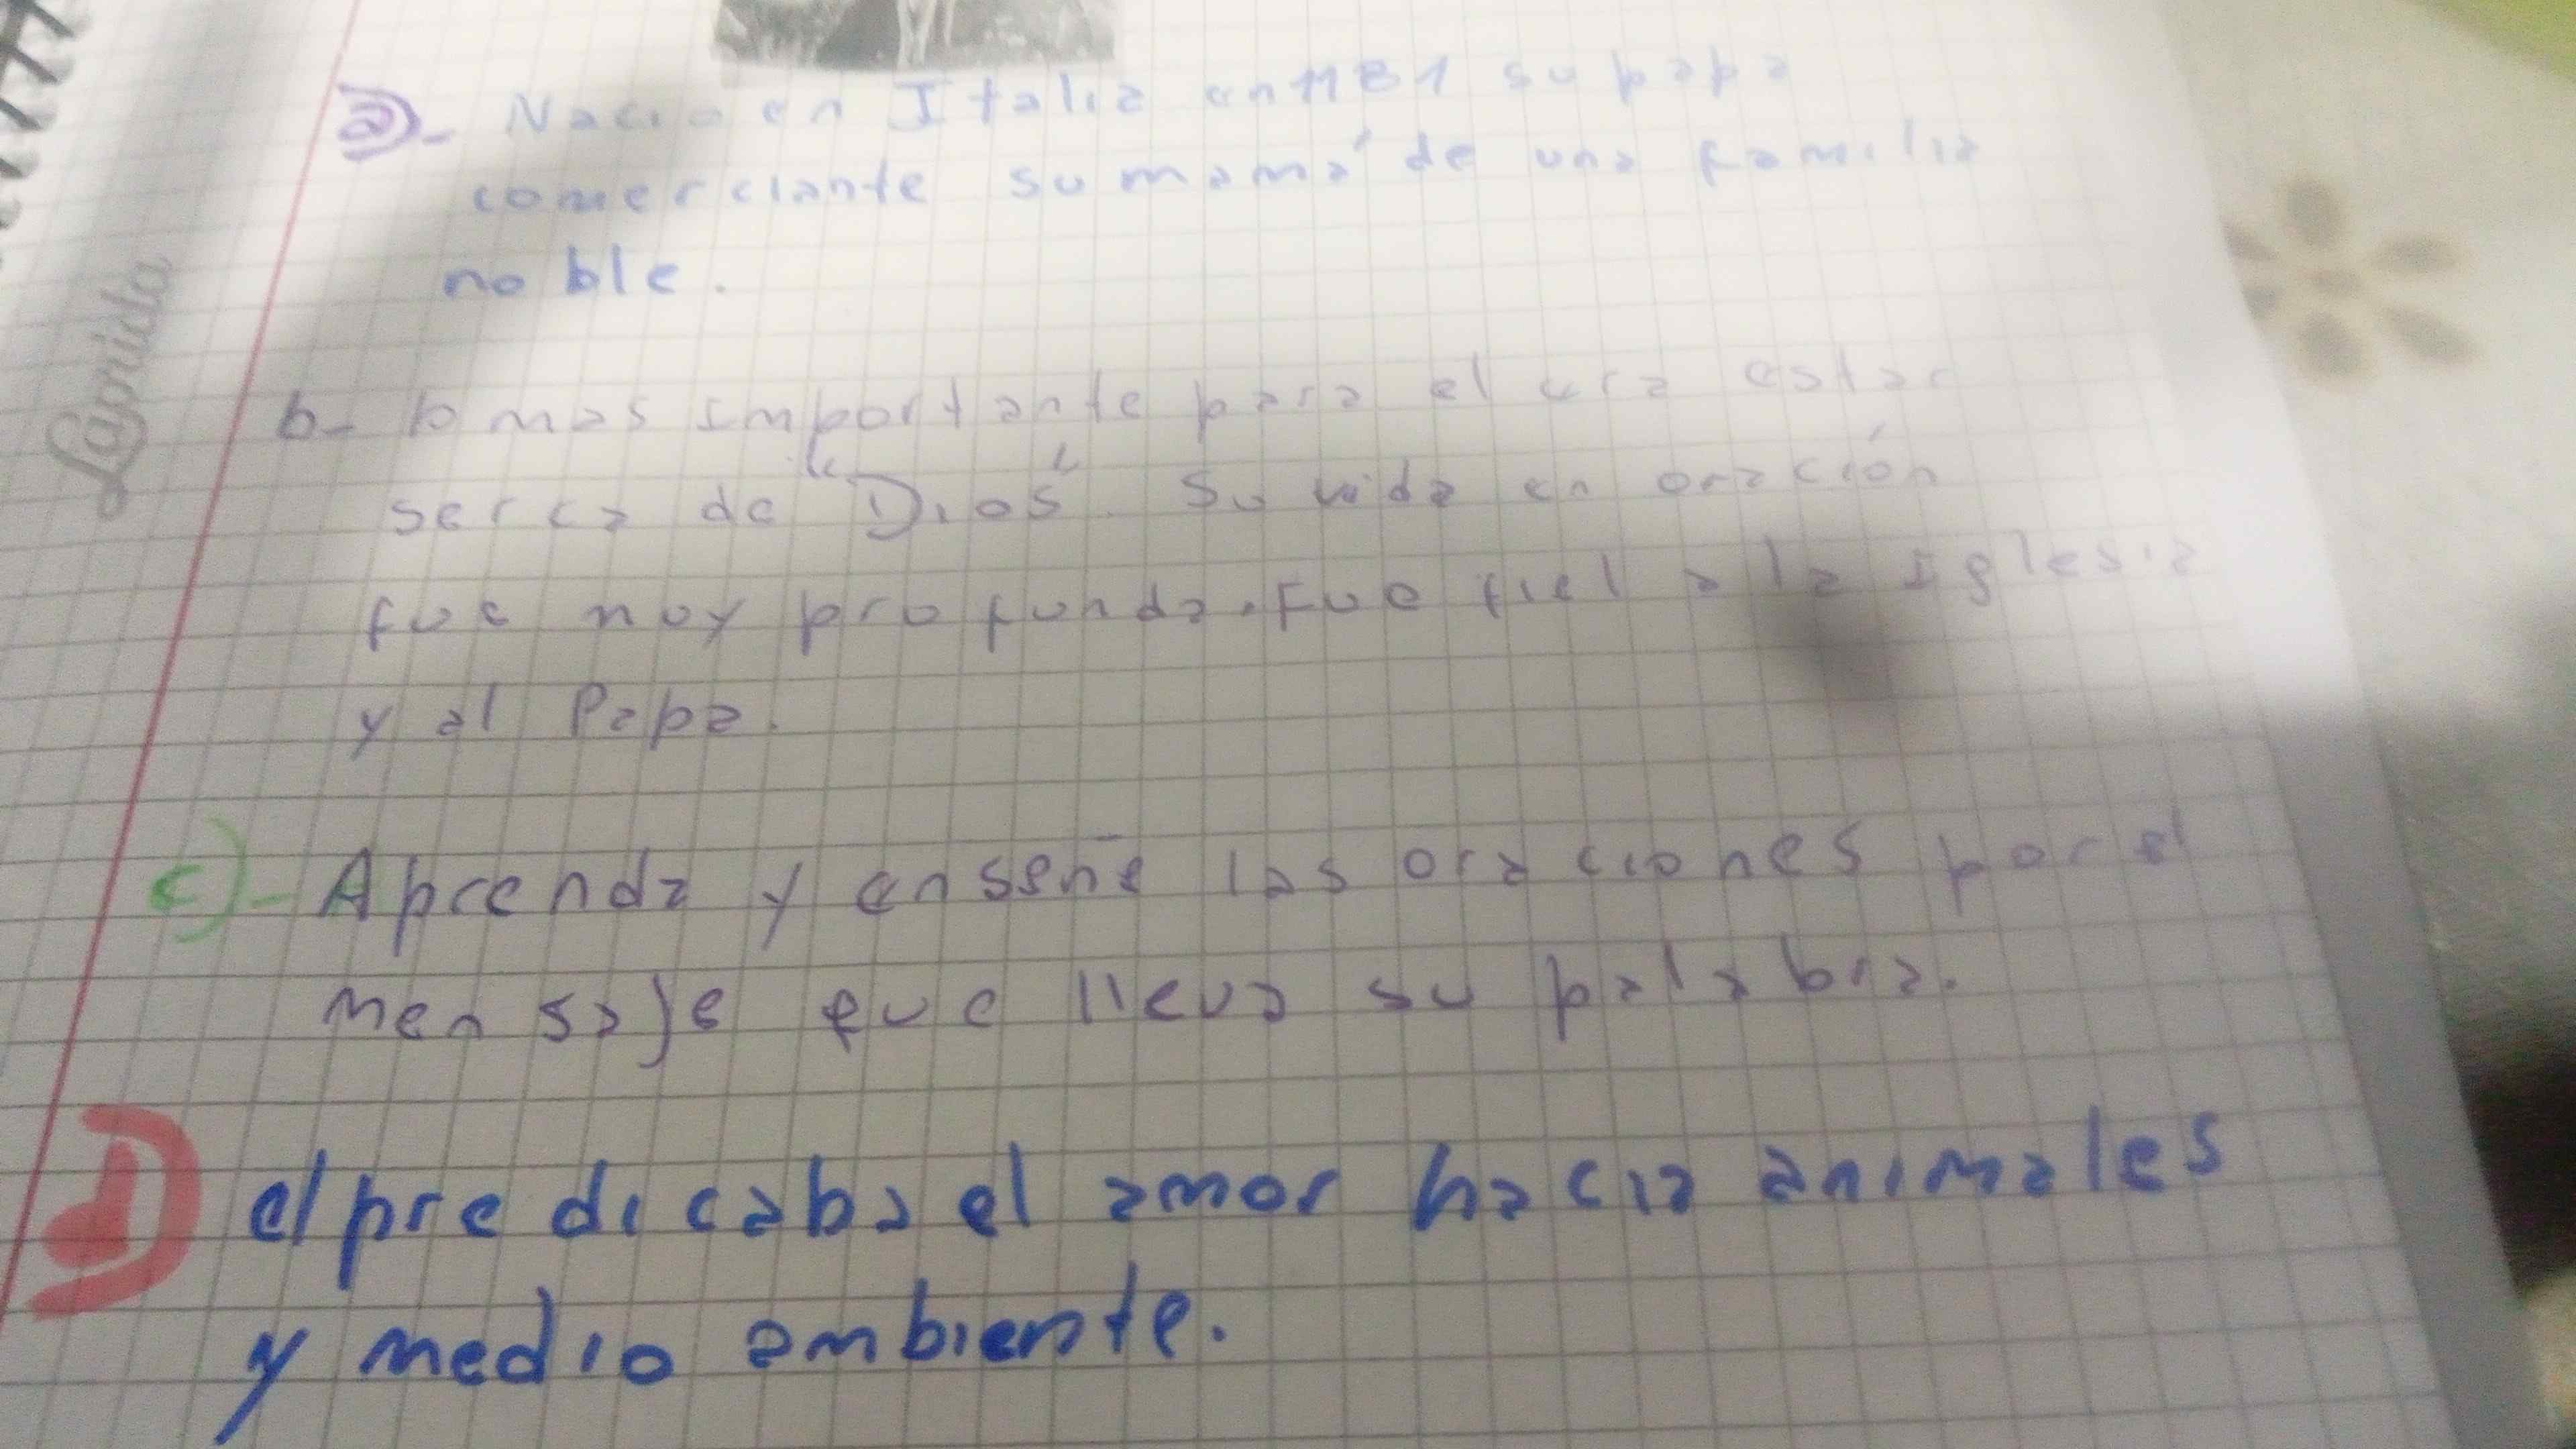 Laprida
a)- Nacio en Italia en 1181 su papa
comerciante su mamá de una familia
no ble.
b- lo mas importante para el era estar
serca de "Dios". Su vida en oración
fue muy profunda. Fue fiel a la Iglesia
y al Papa.
c)- Aprenda y enseñe las oraciones por el
mensaje que lleva su palabra.
D) el predicaba el amor hacia animales
y medio ambiente.